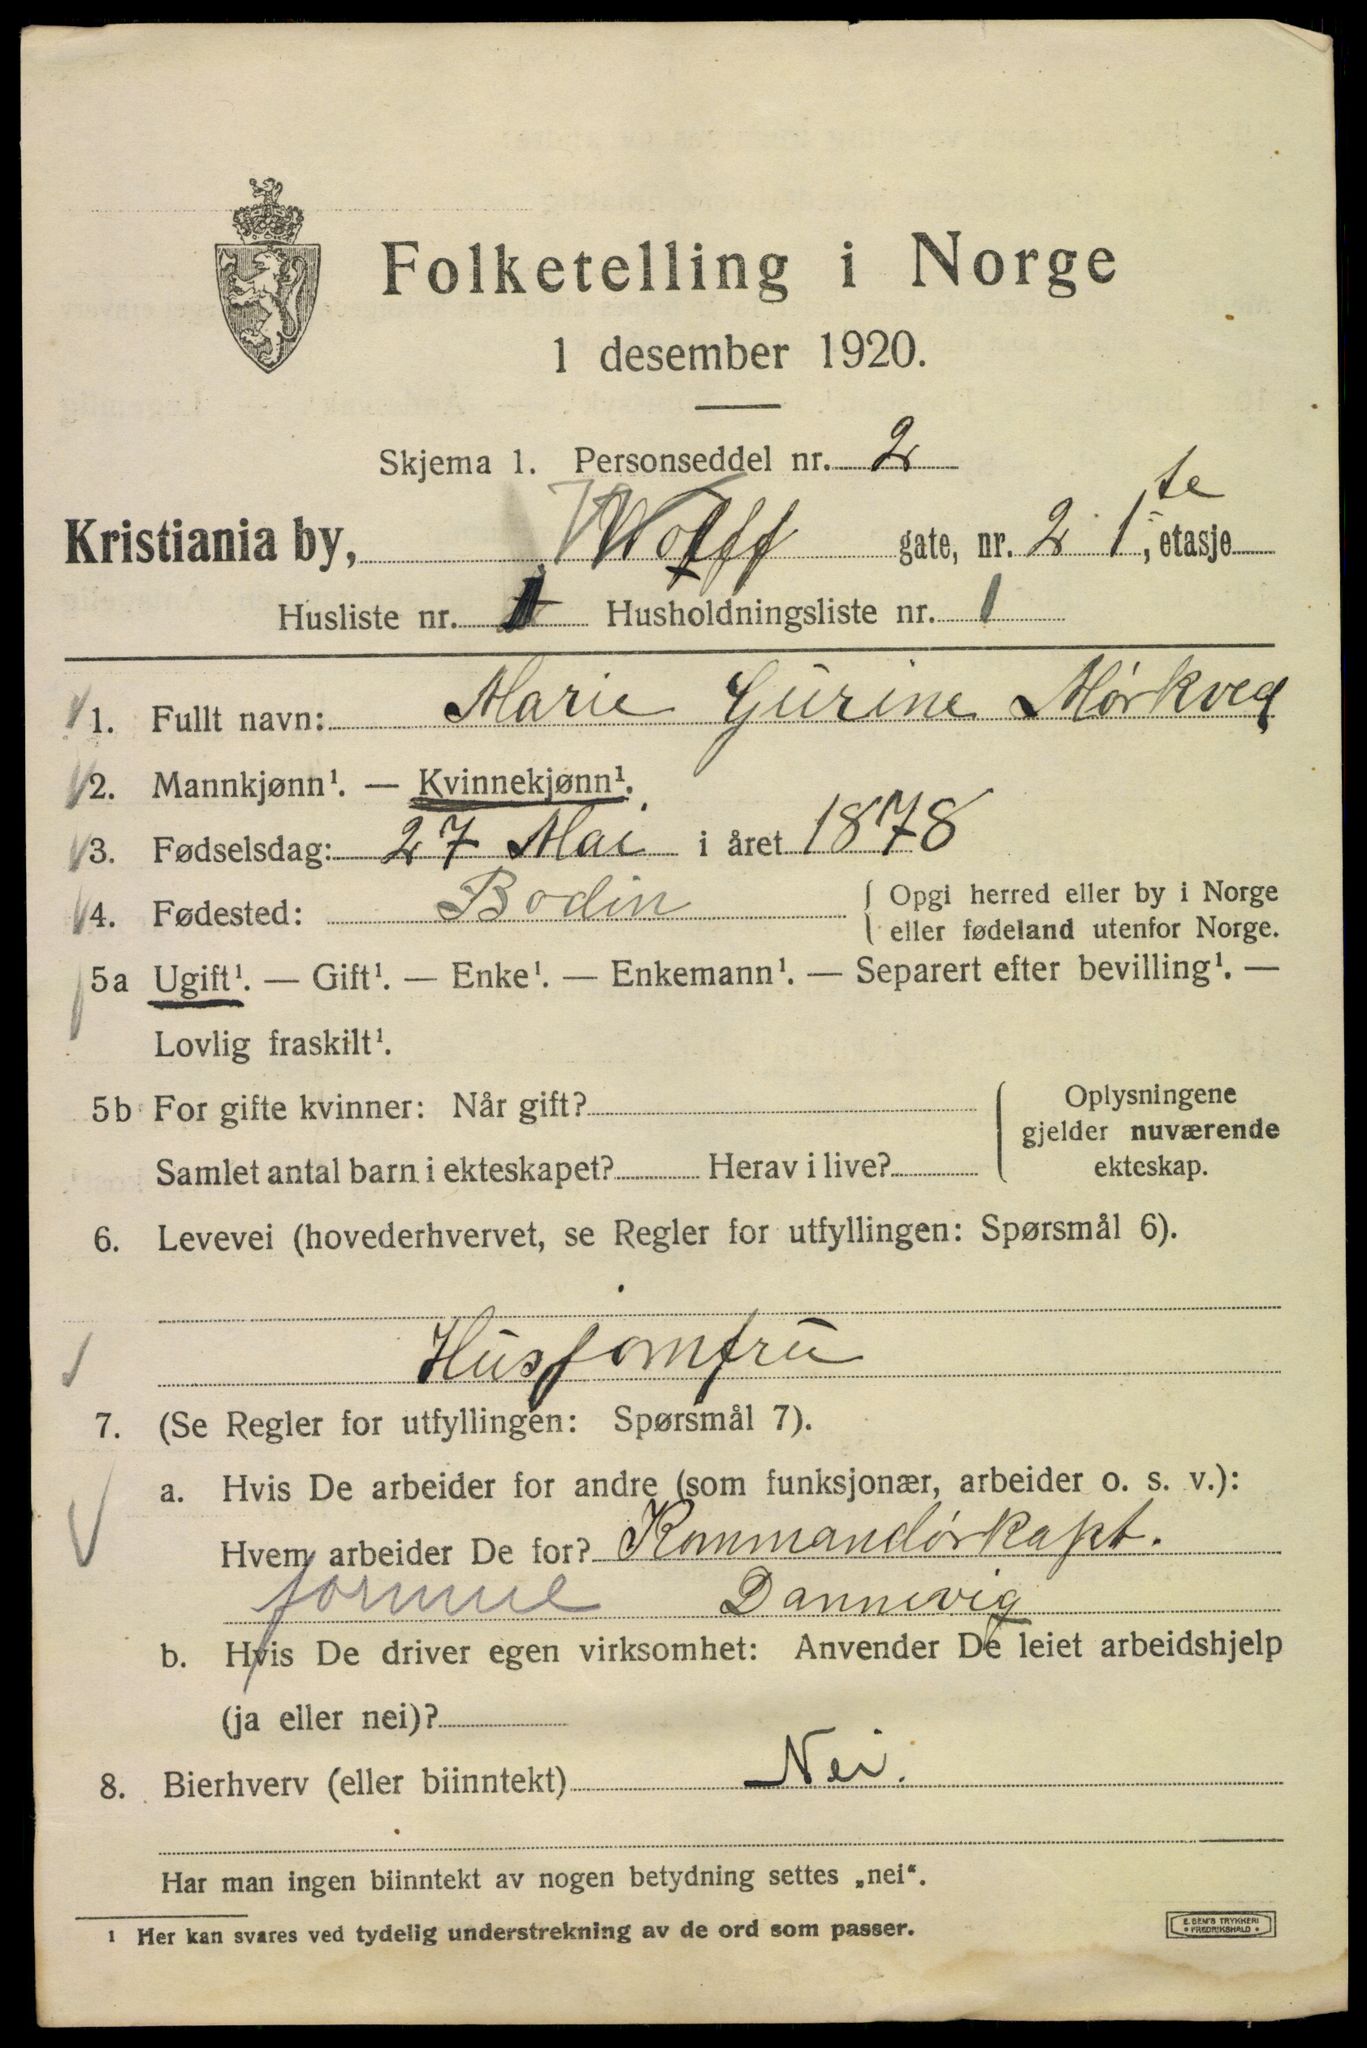 Folketelling i Norge
1 desember 1920.
Skjema 1. Personseddel nr. 2
Kristiania by, Wolff gate, nr. 2 1ste, etasje
Husliste nr. 1 Husholdningsliste nr. 1
1. Fullt navn: Marie Gurine Mørkved
2. Mannkjønn¹. — Kvinnekjønn¹.
3. Fødselsdag: 27 Mai i året 1878
4. Fødested: Bodin { Opgi herred eller by i Norge
eller fødeland utenfor Norge.
5a Ugift¹. — Gift¹. — Enke¹. — Enkemann¹. — Separert efter bevilling¹. —
Lovlig fraskilt¹.
5b For gifte kvinner: Når gift?
Samlet antal barn i ekteskapet? Herav i live?
Oplysningene
gjelder nuværende
ekteskap.
6. Levevei (hovederhvervet, se Regler for utfyllingen: Spørsmål 6).
Husjomfru
7. (Se Regler for utfyllingen: Spørsmål 7).
a. Hvis De arbeider for andre (som funksjonær, arbeider o. s. v.):
Hvem arbeider De for? Kommandørkapt.
formue Dannevig
b. Hvis De driver egen virksomhet: Anvender De leiet arbeidshjelp
(ja eller nei)?
8. Bierhverv (eller biinntekt) Nei.
Har man ingen biinntekt av nogen betydning settes „nei“.
¹ Her kan svares ved tydelig understrekning av de ord som passer.
E. SEM'S TRYKKERI
• FREDRIKSHALD •